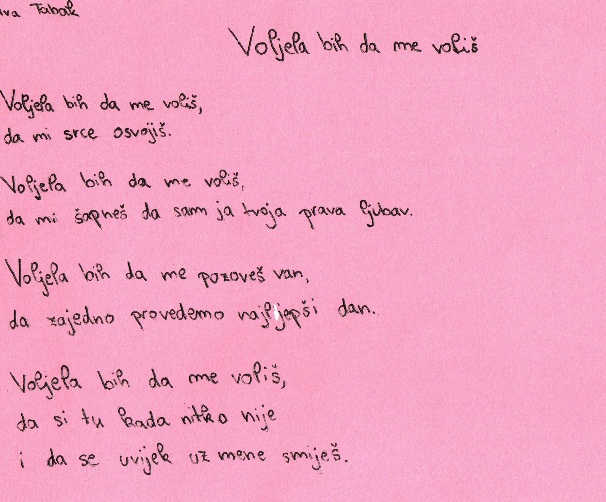 Tabak
Voljela bih da me voliš
Voljela bih da me voliš,
da mi srce osvojiš.
Voljela bih da me voliš,
da mi šapneš da sam ja tvoja prava ljubav.
Voljela bih da me pozoveš van,
da zajedno provedemo najljepši dan.
Voljela bih da me voliš,
da si tu kada nitko nije
i da se uvijek uz mene smiješ.